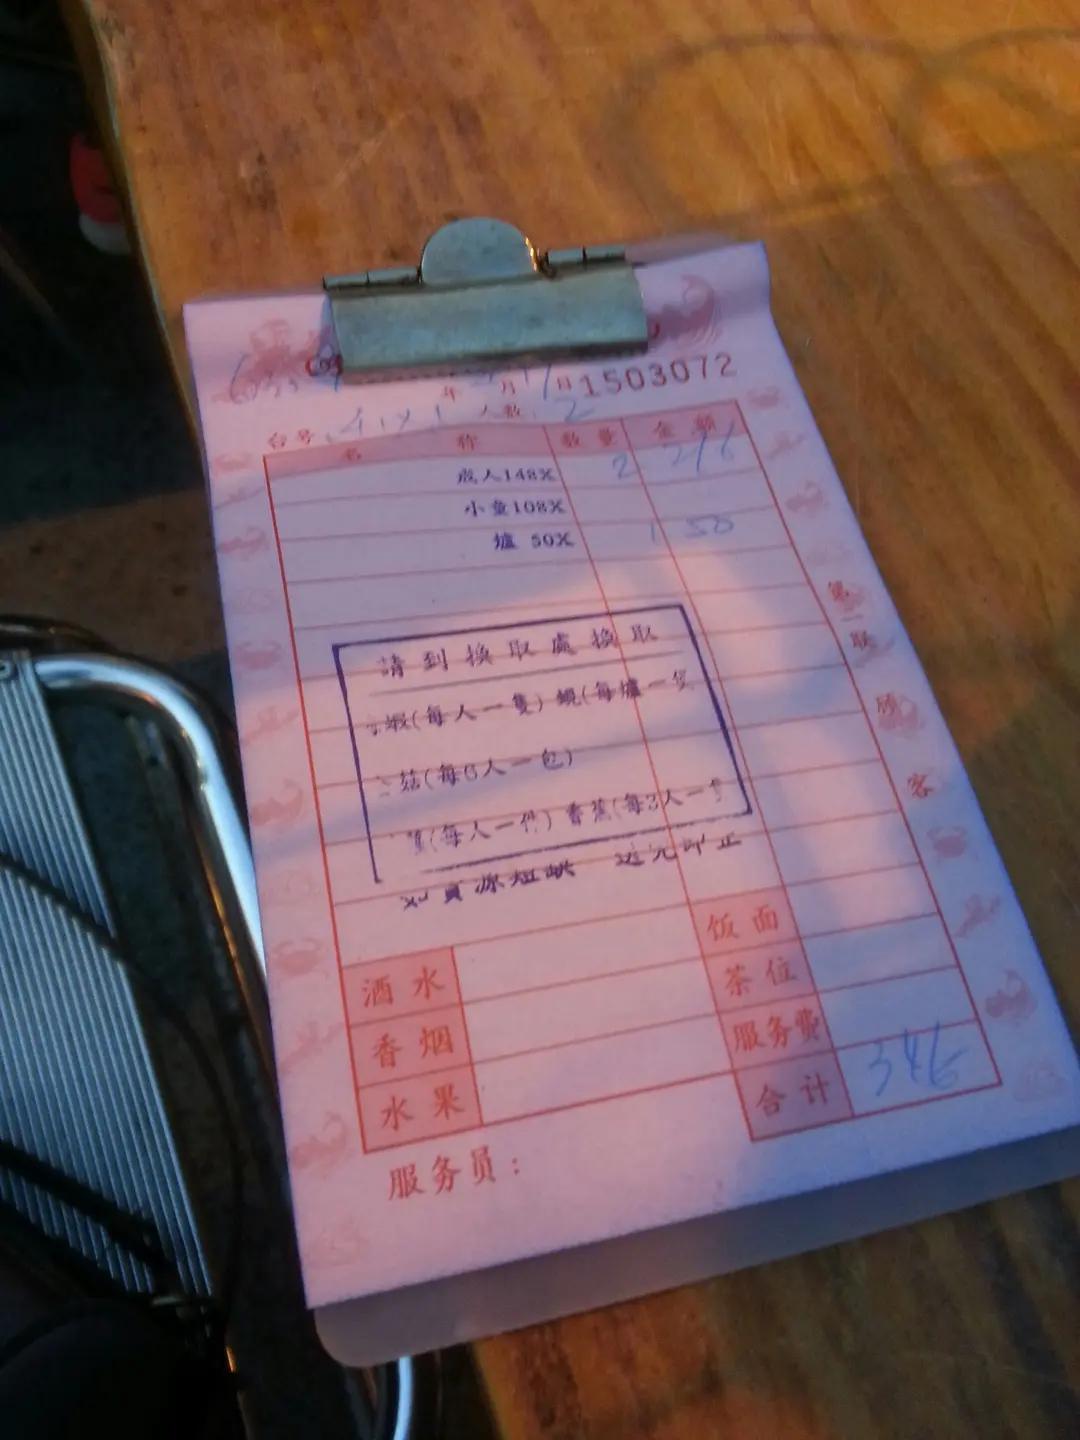 年 月 日 1503072
台号 人数: 2
名 称 数 量 金 额
成人148X 2 296
小童108X
爐 50X 1 50
請 到 換 取 處 換 取
蝦(每人一隻) 蜆(每爐一
菇(每6人一包)
(每人一件) 香蕉(每3人一
如資源短缺 送完即止
第一联 顾客
饭 面
酒 水
茶 位
香 烟
服务费
水 果
合 计 346
服务员: